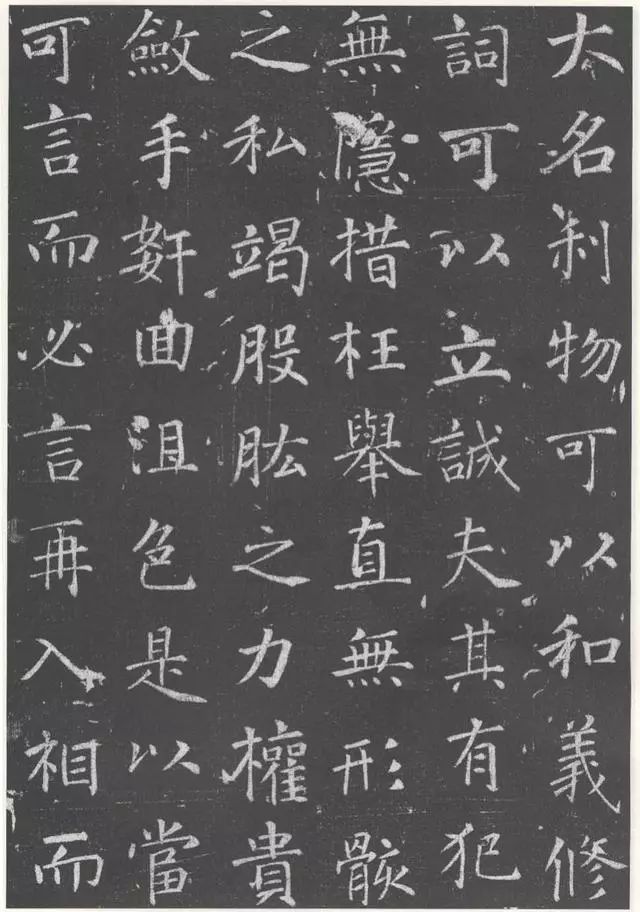 大名利物可以和義修
詞可以立誠夫其有犯
無隱措枉舉直無形骸
之私竭股肱之力權貴
斂手姧囬沮色是以當
可言而必言再入相而